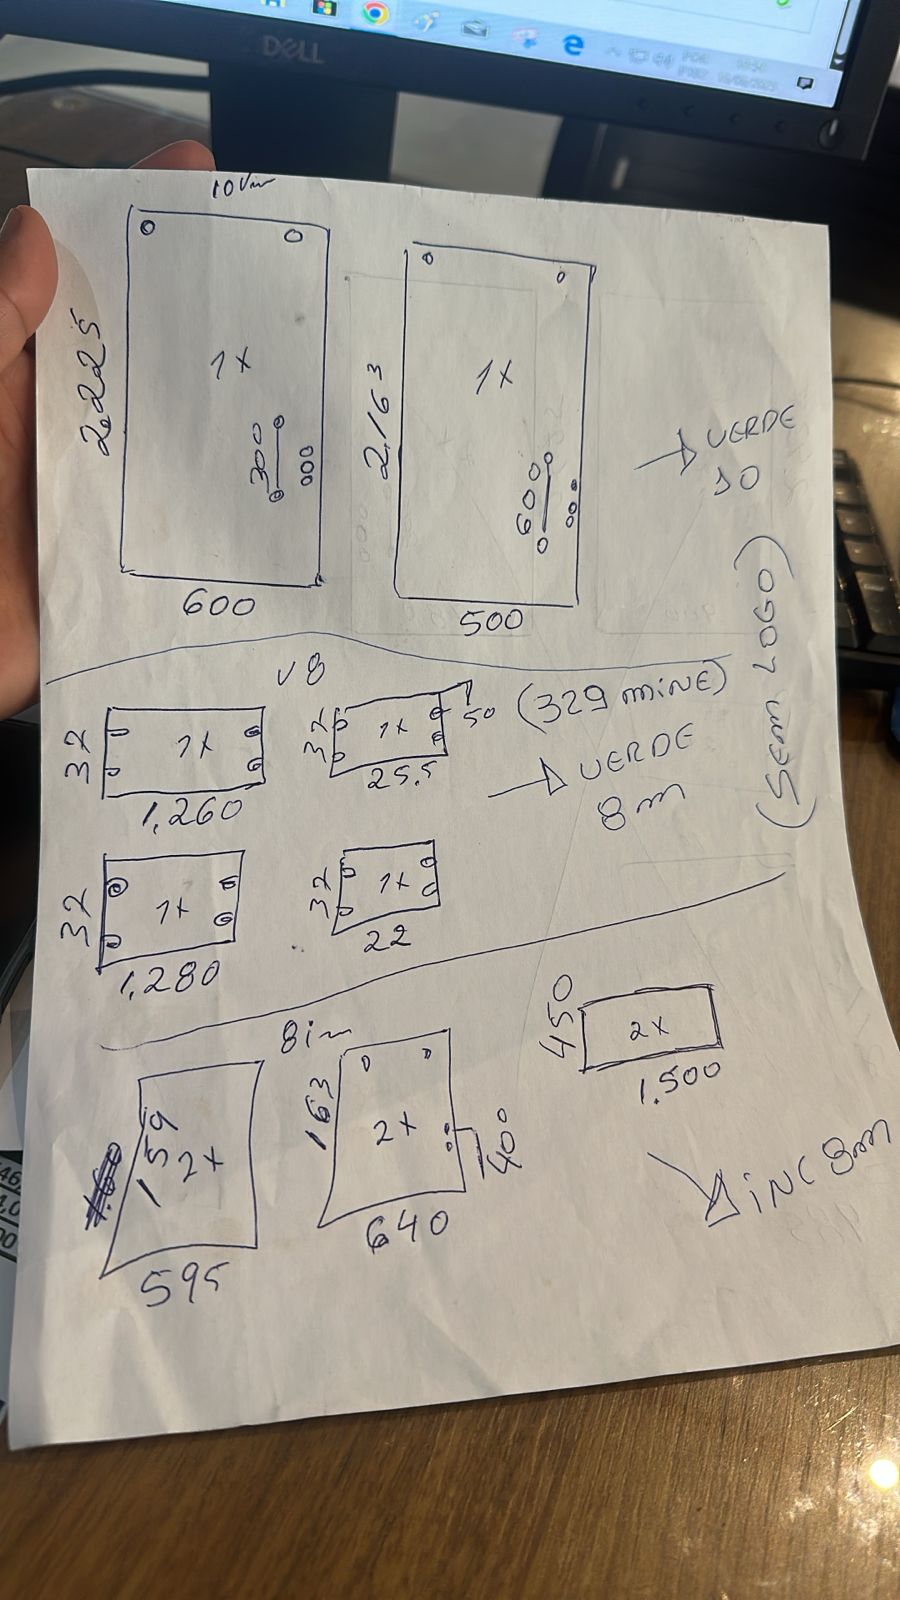 DELL
10Vm
2.225
1x
300
600
2.163
1x
600
500
VERDE
10
(SEM LOGO)
V8
32
1x
1.260
32
1x
50
25.5
(329 MINE)
VERDE
8m
32
1x
1.280
32
1x
22
8im
159
2x
595
163
2x
400
640
450
2x
1.500
INC 8m